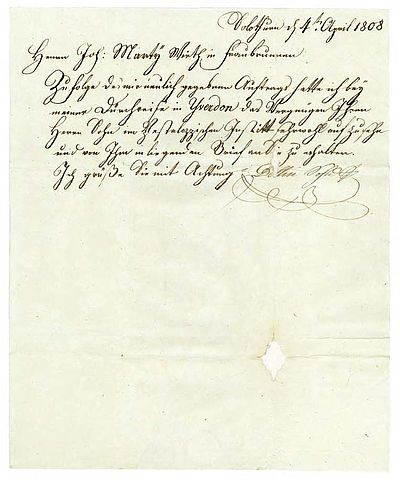 Solothurn d 4ten April 1808
Herrn Joh: Marty Wirth in Fraubrunnen
Zufolge des mir neulich gegebenen Auftrags hatte ich bey
meiner Durchreise in Yverdon das Vergnügen Ihren
Herrn Sohn im Pestalozzischen Institt sehr wohl auf zu sehn
und von Ihm inliegenden Brief an Sie zu erhalten.
Ich grüße Sie mit Achtung